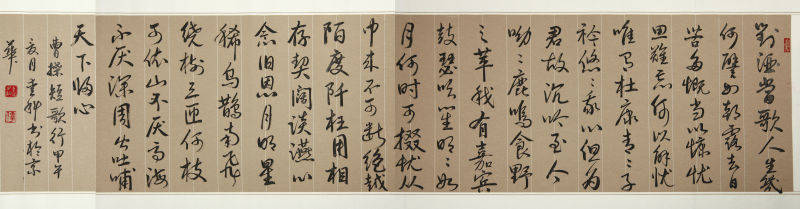 對酒當歌人生幾
何譬如朝露去日
苦多慨當以慷憂
思難忘何以解憂
唯有杜康青〻子
衿悠〻我心但為
君故沉吟至今
呦〻鹿鳴食野
之苹我有嘉賓
鼓瑟吹笙明〻如
月何時可掇憂從
中來不可斷絕越
陌度阡枉用相
存契闊談讌心
念旧恩月明星
稀烏鵲南飛
繞樹三匝何枝
可依山不厭高海
不厭深周公吐哺
天下歸心
曹操短歌行甲午
亥月書於京
華